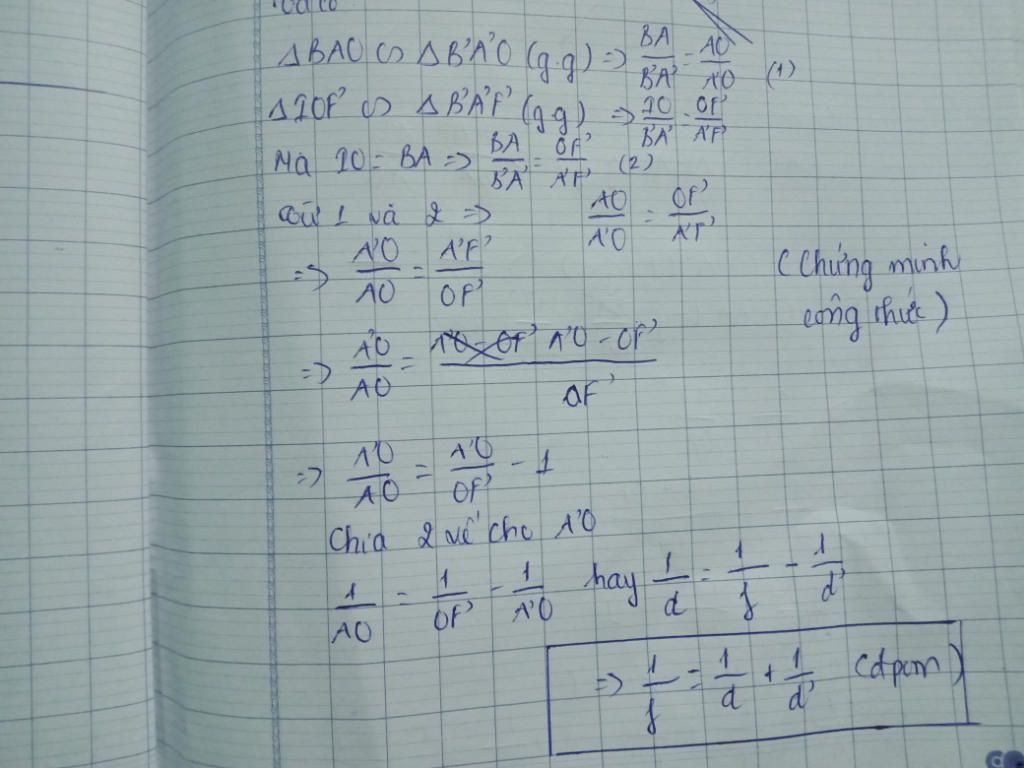 Ta có
ΔBAO ∽ ΔB'A'O (g.g) => BA/B'A' = AO/A'O (1)
ΔIOF' ∽ ΔB'A'F' (g.g) => IO/B'A' = OF'/A'F'
Mà IO = BA => BA/B'A' = OF'/A'F' (2)
Từ 1 và 2 => AO/A'O = OF'/A'F'
=> A'O/AO = A'F'/OF'
(Chứng minh
công thức)
=> A'O/AO = (A'O - OF')/OF'
=> A'O/AO = A'O/OF' - 1
Chia 2 vế cho A'O
1/AO = 1/OF' - 1/A'O hay 1/d = 1/f - 1/d'
=> 1/f = 1/d + 1/d' (đpcm)